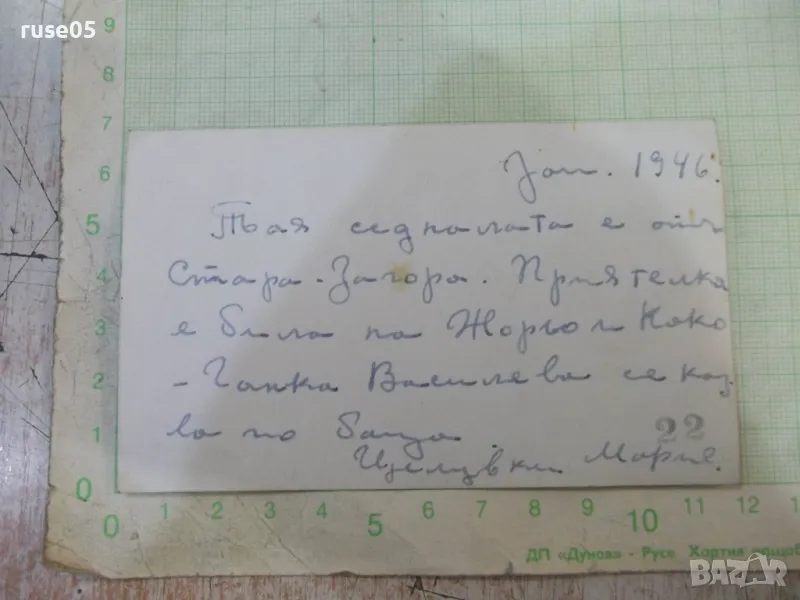 ruse05
Јан. 1946.
Тая седналата е от
Стара-Загора. Приятелка
е била на Жоръо и Коко
- Ганка Василева се каз
ва по баща.
22
Целувки Мария.
9
8
7
6
5
4
3
2
1
0
0 1 2 3 4 5 6 7 8 9 10 11 12
ДП «Дунав» - Русе Хартия
BAZAR